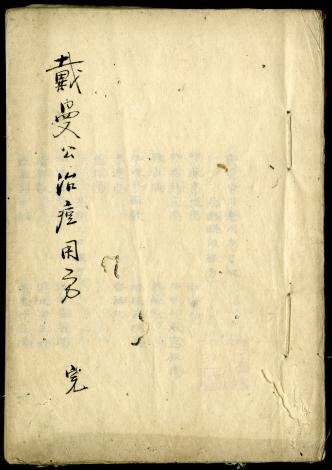 戴曼公治痘用方 完